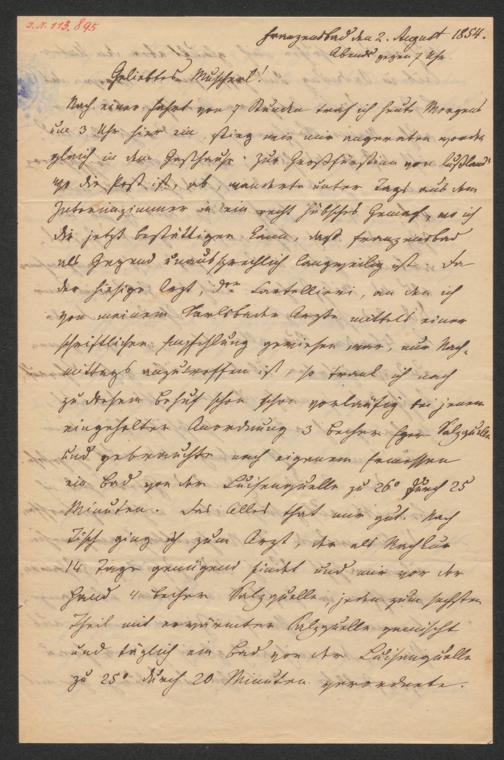 I.N. 113.895
Franzensbad den 2. August 1854.
Abends gegen 7 Uhr
Geliebtes Muscherl!
Nach einer Fahrt von 7 Stunden traf ich heute Morgens
um 3 Uhr hier ein, stieg wie mir angerathen worden
gleich in dem Gasthause "Zur Großfürstin von Rußland"
wo die Post ist, ab, wanderte unter Tags aus dem
Interimszimmer in ein recht hübsches Gemach, wo ich
dir jetzt bestättigen kann, daß Franzensbad
als Gegend unaussprechlich langweilig ist. Da
der hiesige Arzt, Dr. Cartellieri, an den ich
von meinem Karlsbader Arzte mittels einer
schriftlichen Empfehlung gewiesen war, nur Nach-
mittags anzutreffen ist, so trank ich nach
zu diesem Behuf schon vorläufig bei jenem
eingeholter Anordnung 3 Becher Eger Salzquelle
und gebrauchte nach eigenem Ermessen
ein Bad von der Luisenquelle zu 26° durch 25
Minuten. Das Alles that mir gut. Nach
Tisch ging ich zum Arzt, der als Nachkur
14 Tage genügend findet und mir vor der
Hand 4 Becher Salzquelle, jeden zum sechsten
Theil mit erwärmter Salzquelle gemischt
und täglich ein Bad von der Luisenquelle
zu 25° durch 20 Minuten verordnete.